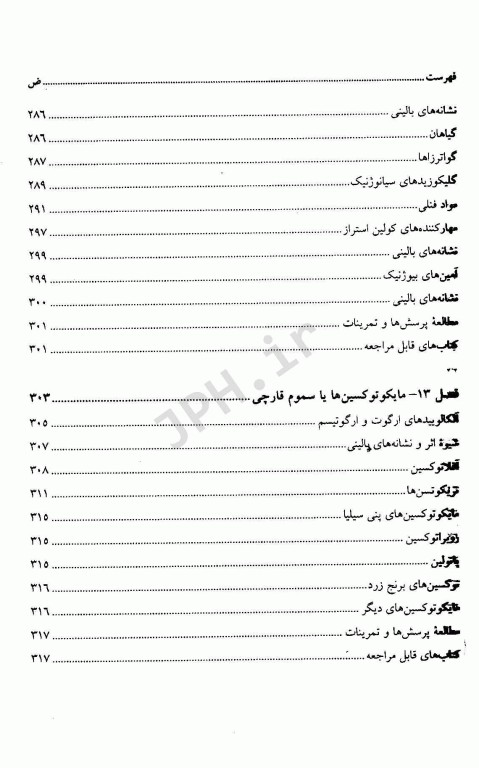 فهرست ........ ض
نشانه‌های بالینی ........ ۲۸۶
گیاهان ........ ۲۸۶
گواترزاها ........ ۲۸۷
گلیکوزیدهای سیانوژنیک ........ ۲۸۹
مواد فنلی ........ ۲۹۱
مهارکننده‌های کولین استراز ........ ۲۹۷
نشانه‌های بالینی ........ ۲۹۹
آمین‌های بیوژنیک ........ ۲۹۹
نشانه‌های بالینی ........ ۳۰۰
مطالعهٔ پرسش‌ها و تمرینات ........ ۳۰۱
کتاب‌های قابل مراجعه ........ ۳۰۱
JPH.ir
فصل ۱۳- مایکوتوکسین‌ها یا سموم قارچی ........ ۳۰۳
آلکالوییدهای ارگوت و ارگوتیسم ........ ۳۰۵
شیوهٔ اثر و نشانه‌های بالینی ........ ۳۰۷
آفلاتوکسین ........ ۳۰۸
تریکوتسن‌ها ........ ۳۱۱
مایکوتوکسین‌های پنی سیلیا ........ ۳۱۵
روبراتوکسین ........ ۳۱۵
پاتولین ........ ۳۱۵
توکسین‌های برنج زرد ........ ۳۱۶
مایکوتوکسین‌های دیگر ........ ۳۱۶
مطالعهٔ پرسش‌ها و تمرینات ........ ۳۱۷
کتاب‌های قابل مراجعه ........ ۳۱۷